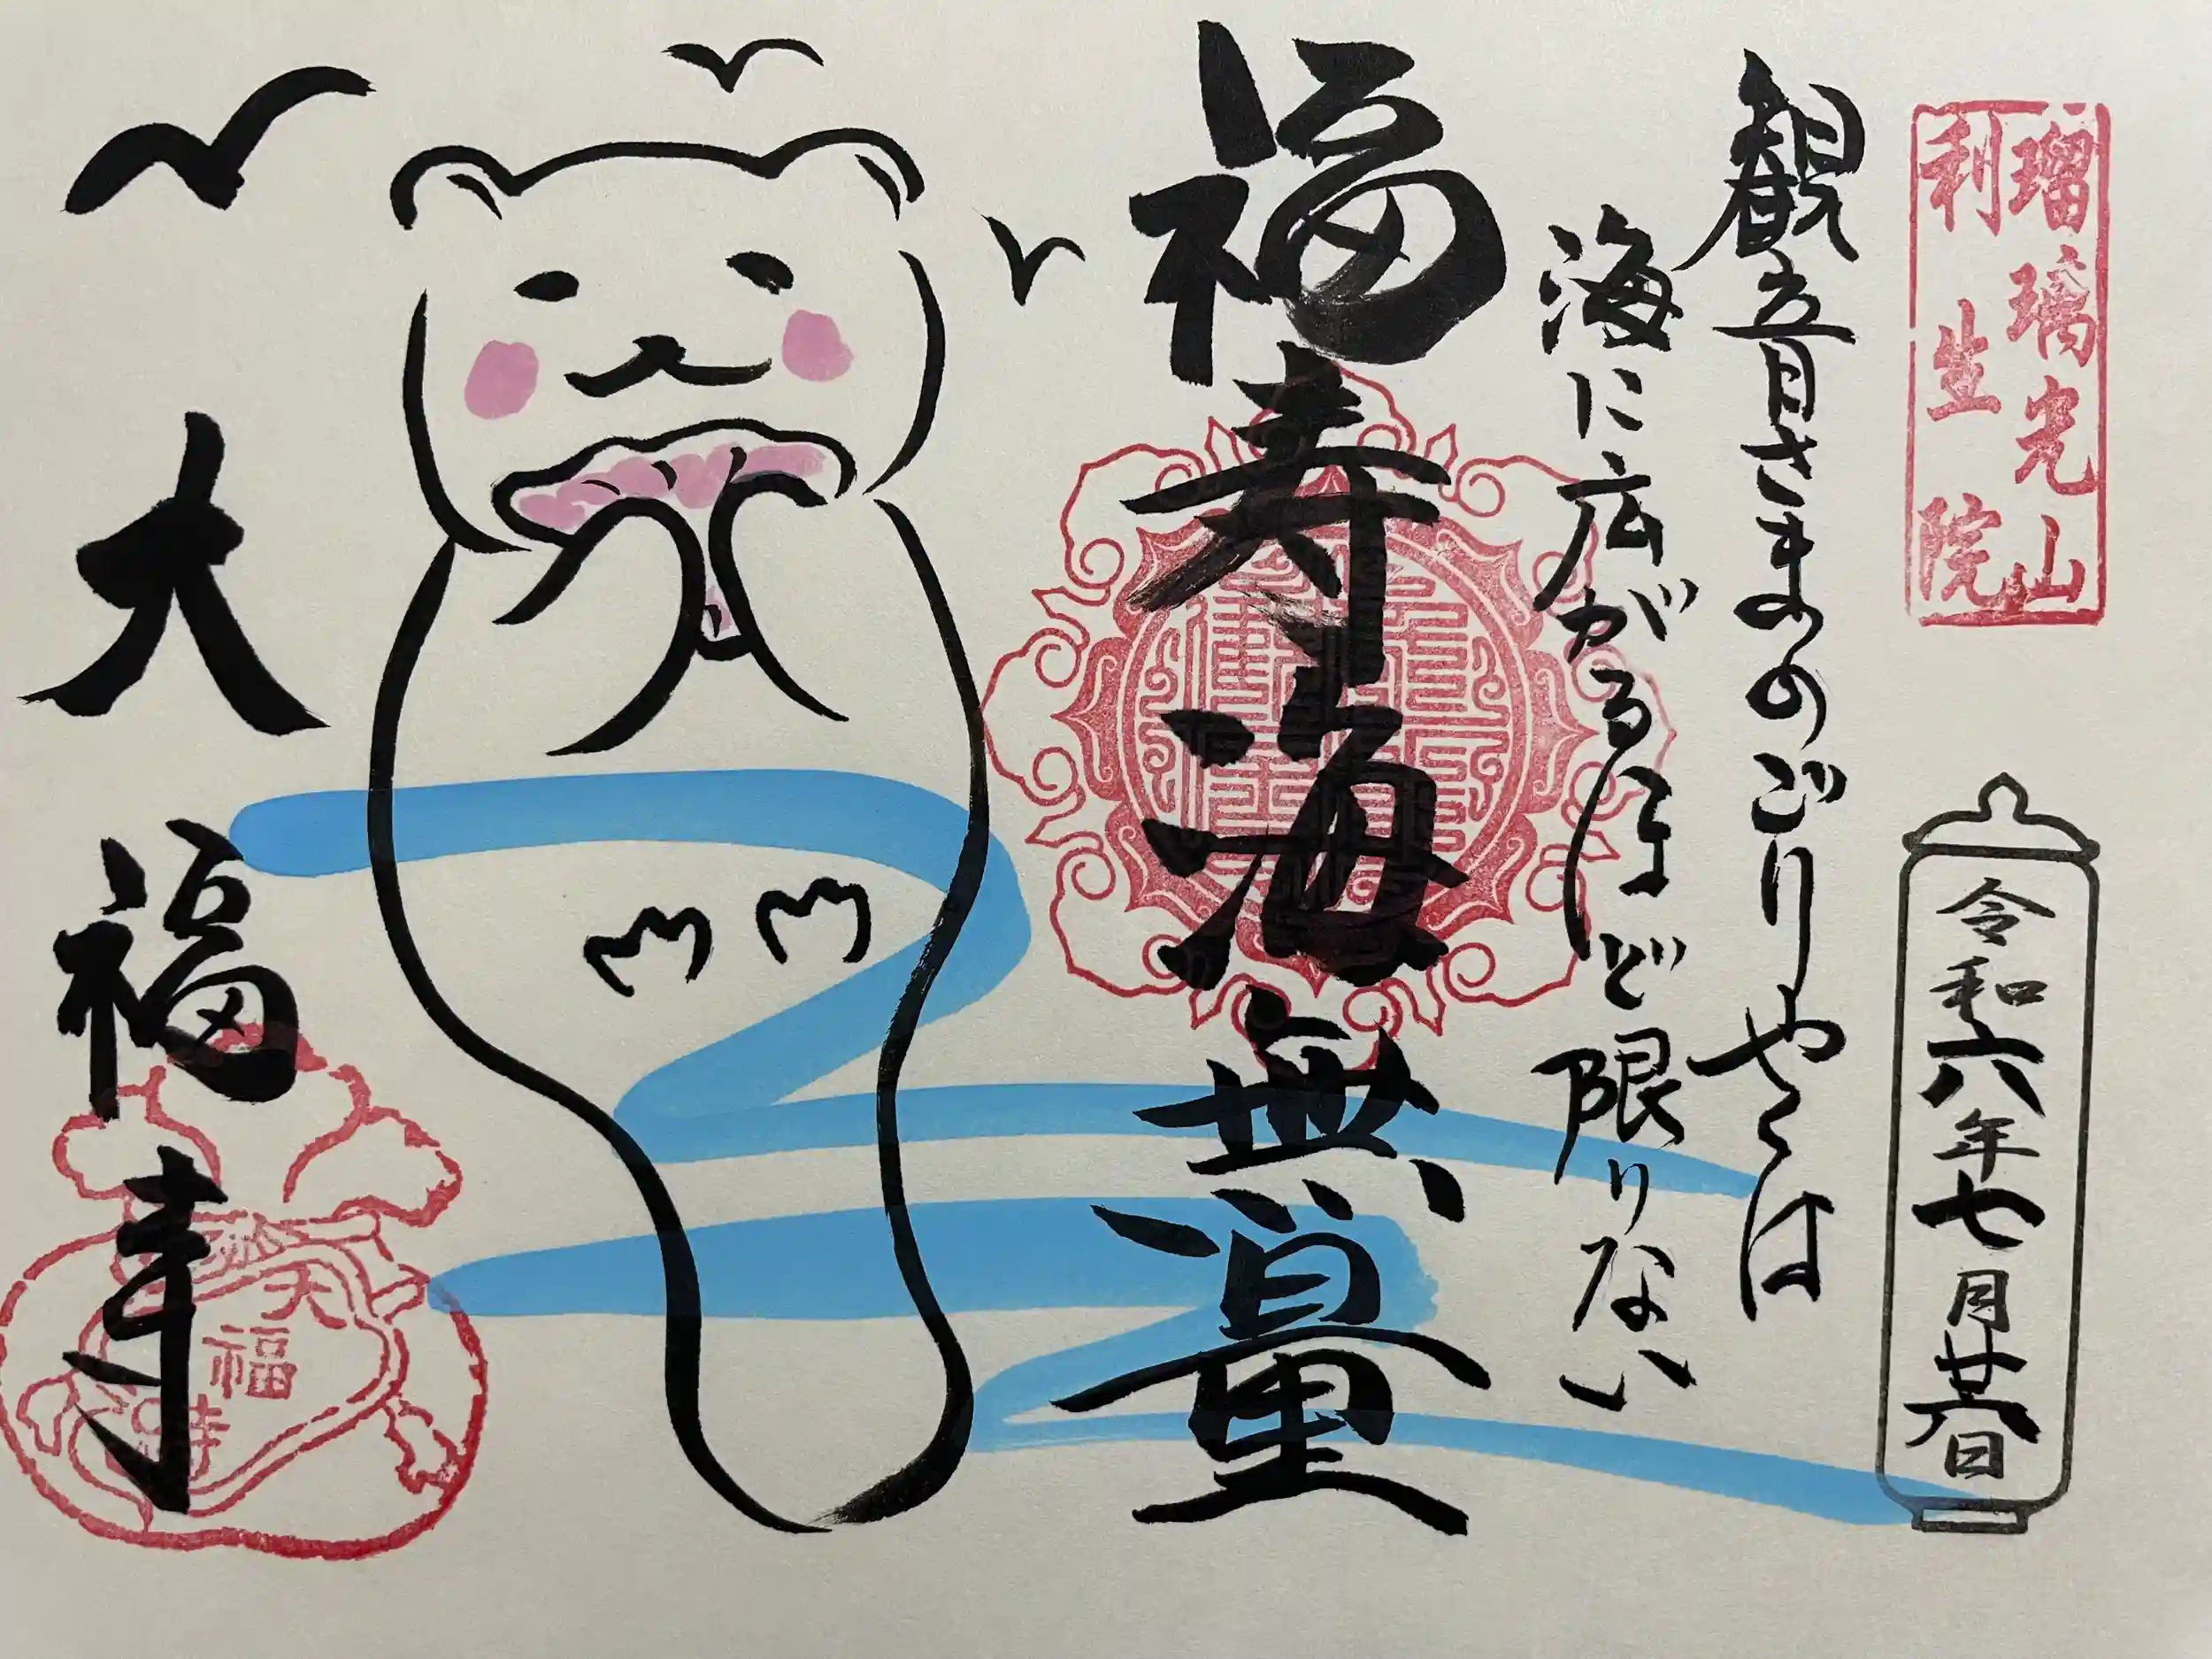 瑠璃光山
利生院
令和六年七月廿六日
観音さまのごりやくは
海に広がるほど限りない
福寿海無量
大福寺
大
福